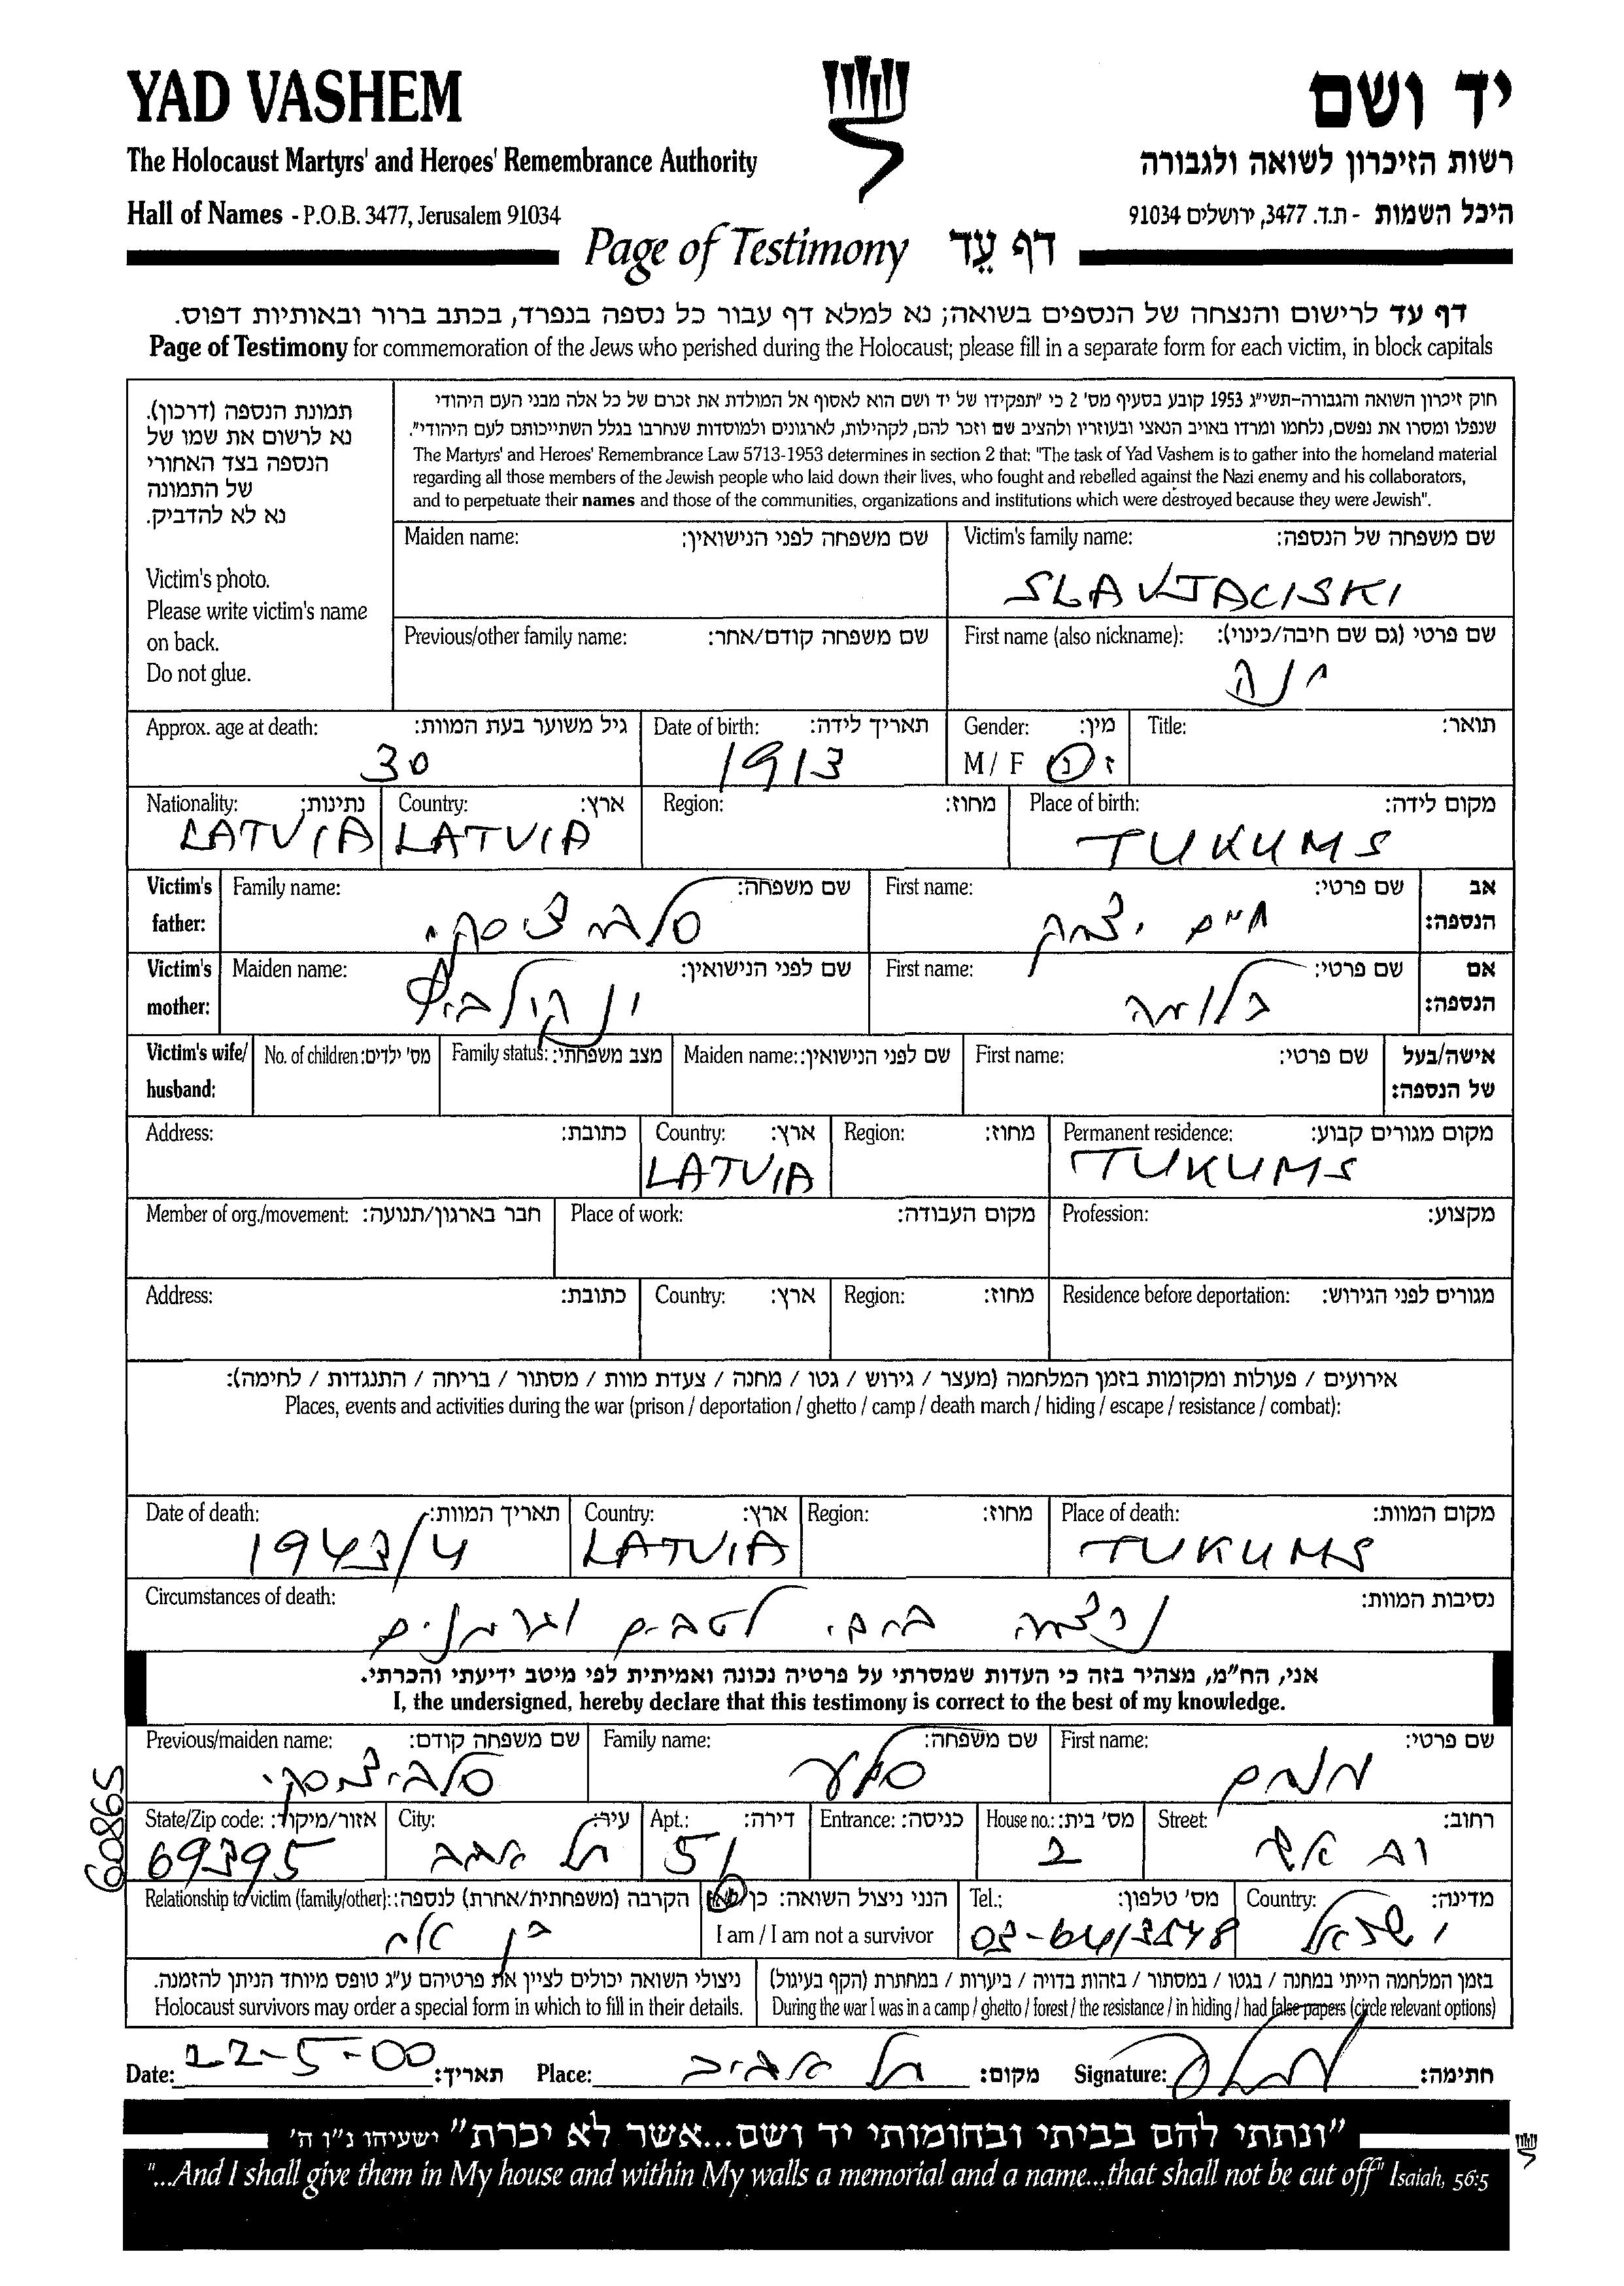 YAD VASHEM
יד ושם
The Holocaust Martyrs' and Heroes' Remembrance Authority
רשות הזיכרון לשואה ולגבורה
Hall of Names - P.O.B. 3477, Jerusalem 91034
היכל השמות - ת.ד. 3477, ירושלים 91034
Page of Testimony דף עֵד
דף עד לרישום והנצחה של הנספים בשואה; נא למלא דף עבור כל נספה בנפרד, בכתב ברור ובאותיות דפוס.
Page of Testimony for commemoration of the Jews who perished during the Holocaust; please fill in a separate form for each victim, in block capitals
תמונת הנספה (דרכון).
נא לרשום את שמו של
הנספה בצד האחורי
של התמונה
נא לא להדביק.
Victim's photo.
Please write victim's name
on back.
Do not glue.
חוק זיכרון השואה והגבורה-תשי״ג 1953 קובע בסעיף מס' 2 כי "תפקידו של יד ושם הוא לאסוף אל המולדת את זכרם של כל אלה מבני העם היהודי
שנפלו ומסרו את נפשם, נלחמו ומרדו באויב הנאצי ובעוזריו ולהציב שם וזכר להם, לקהילות, לארגונים ולמוסדות שנחרבו בגלל השתייכותם לעם היהודי".
The Martyrs' and Heroes' Remembrance Law 5713-1953 determines in section 2 that: "The task of Yad Vashem is to gather into the homeland material
regarding all those members of the Jewish people who laid down their lives, who fought and rebelled against the Nazi enemy and his collaborators,
and to perpetuate their names and those of the communities, organizations and institutions which were destroyed because they were Jewish".
Maiden name: שם משפחה לפני הנישואין:
Victim's family name: שם משפחה של הנספה:
SLAVJACISKI
Previous/other family name: שם משפחה קודם/אחר:
First name (also nickname): שם פרטי (גם שם חיבה/כינוי):
Approx. age at death: גיל משוער בעת המוות:
30
Date of birth: תאריך לידה:
1913
Gender: מין:
M / F ז נ
Title: תואר:
Nationality: נתינות:
LATVIA
Country: ארץ:
LATVIA
Region: מחוז:
Place of birth: מקום לידה:
TUKUMS
Victim's father: Family name: שם משפחה:
First name: שם פרטי:
חיים יצחק
אב הנספה:
Victim's mother: Maiden name: שם לפני הנישואין:
First name: שם פרטי:
בלומה
אם הנספה:
Victim's wife/ husband: No. of children: מס' ילדים:
Family status: מצב משפחתי:
Maiden name: שם לפני הנישואין:
First name: שם פרטי:
אישה/בעל של הנספה:
Address: כתובת:
Country: ארץ:
LATVIA
Region: מחוז:
Permanent residence: מקום מגורים קבוע:
TUKUMS
Member of org./movement: חבר בארגון/תנועה:
Place of work: מקום העבודה:
Profession: מקצוע:
Address: כתובת:
Country: ארץ:
Region: מחוז:
Residence before deportation: מגורים לפני הגירוש:
אירועים / פעולות ומקומות בזמן המלחמה (מעצר / גירוש / גטו / מחנה / צעדת מוות / מסתור / בריחה / התנגדות / לחימה):
Places, events and activities during the war (prison / deportation / ghetto / camp / death march / hiding / escape / resistance / combat):
Date of death: תאריך המוות:
1943/4
Country: ארץ:
LATVIA
Region: מחוז:
Place of death: מקום המוות:
TUKUMS
Circumstances of death: נסיבות המוות:
נרצחה בידי לטבים וגרמנים
אני, הח"מ, מצהיר בזה כי העדות שמסרתי על פרטיה נכונה ואמיתית לפי מיטב ידיעתי והכרתי.
I, the undersigned, hereby declare that this testimony is correct to the best of my knowledge.
Previous/maiden name: שם משפחה קודם:
Family name: שם משפחה:
סלע
First name: שם פרטי:
מנחם
60865
State/Zip code: אזור/מיקוד:
69395
City: עיר:
תל אביב
Apt.: דירה:
51
Entrance: כניסה:
House no.: מס' בית:
2
Street: רחוב:
Relationship to victim (family/other): הקרבה (משפחתית/אחרת) לנספה:
בן אח
הנני ניצול השואה: כן/לא
I am / I am not a survivor
Tel.: מס' טלפון:
Country: מדינה:
ישראל
ניצולי השואה יכולים לציין את פרטיהם ע"ג טופס מיוחד הניתן להזמנה.
Holocaust survivors may order a special form in which to fill in their details.
בזמן המלחמה הייתי במחנה / בגטו / במסתור / בזהות בדויה / ביערות / במחתרת (הקף בעיגול)
During the war I was in a camp / ghetto / forest / the resistance / in hiding / had false papers (circle relevant options)
Date: 22-5-00 תאריך:
Place: תל אביב מקום:
Signature: חתימה:
"ונתתי להם בביתי ובחומותי יד ושם...אשר לא יכרת" ישעיהו נ"ו ה'
"...And I shall give them in My house and within My walls a memorial and a name...that shall not be cut off" Isaiah, 56:5